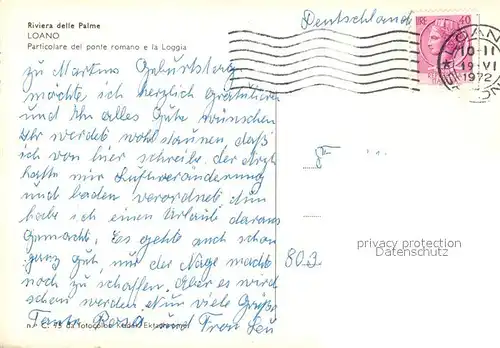 Riviera delle Palme
LOANO
Particolare del ponte romano e la Loggia
Deutschland
IRE 40
LOANO
10-11
19.VI
1972
zu Martins Geburtstag
möchte ich herzlich gratulieren
und Ihm alles Gute wünschen
Ihr werdet wohl staunen, daß
ich von hier schreibe. der Arzt
hatte mir Luftveränderung
und baden verordnet, nun
habe ich einen Urlaub daraus
gemacht. Es geht auch schon
ganz gut, nur der Magen macht
noch zu schaffen. Aber es wird
schon werden. Nun viele Grüße
Tante Rosa und Frau
803
privacy protection
Datenschutz
Ektachrome